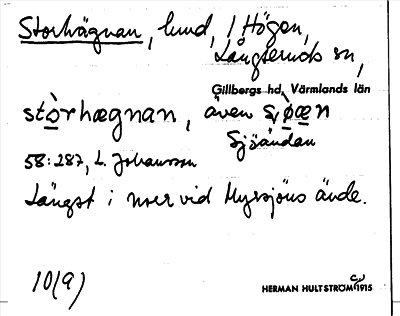 Storhägnan, lund, / Högen,
Långseruds sn,
Gillbergs hd, Värmlands län
stòrhægnan, även
Sjöändan
58:287, L. Johansson
Längst i norr vid Myrsjöns ände.
10(9)
HERMAN HULTSTRÖM 1915